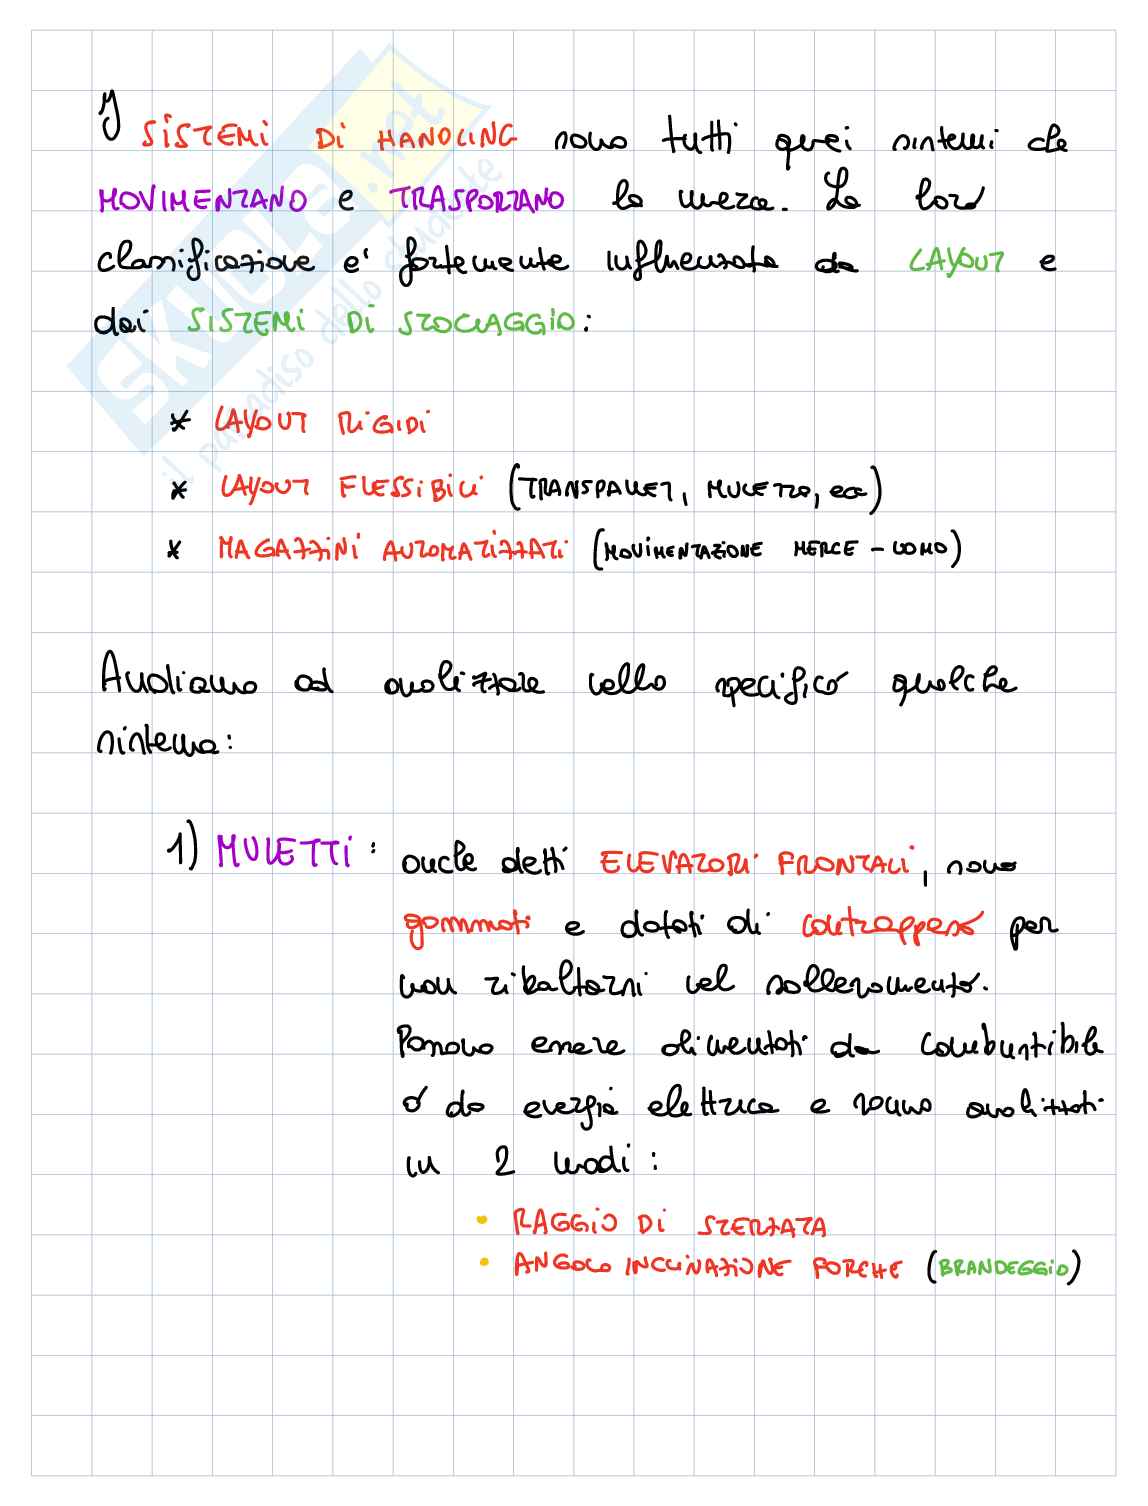 I SISTEMI DI HANDLING sono tutti quei sistemi che
MOVIMENTANO e TRASPORTANO la merce. La loro
classificazione e' fortemente influenzata da LAYOUT e
dai SISTEMI DI STOCCAGGIO:
* LAYOUT RIGIDI
* LAYOUT FLESSIBILI (TRANSPALLET, MULETTO, ecc)
* MAGAZZINI AUTOMATIZZATI (MOVIMENTAZIONE MERCE - UOMO)
Andiamo ad analizzare nello specifico qualche
sistema:
1) MULETTI: anche detti ELEVATORI FRONTALI, sono
gommati e dotati di contrappeso per
non ribaltarsi nel sollevamento.
Possono essere alimentati da combustibile
o da energia elettrica e vanno analizzati
in 2 modi:
• RAGGIO DI STERZATA
• ANGOLO INCLINAZIONE FORCHE (BRANDEGGIO)
SKUOLA.net
il paradiso dello studente